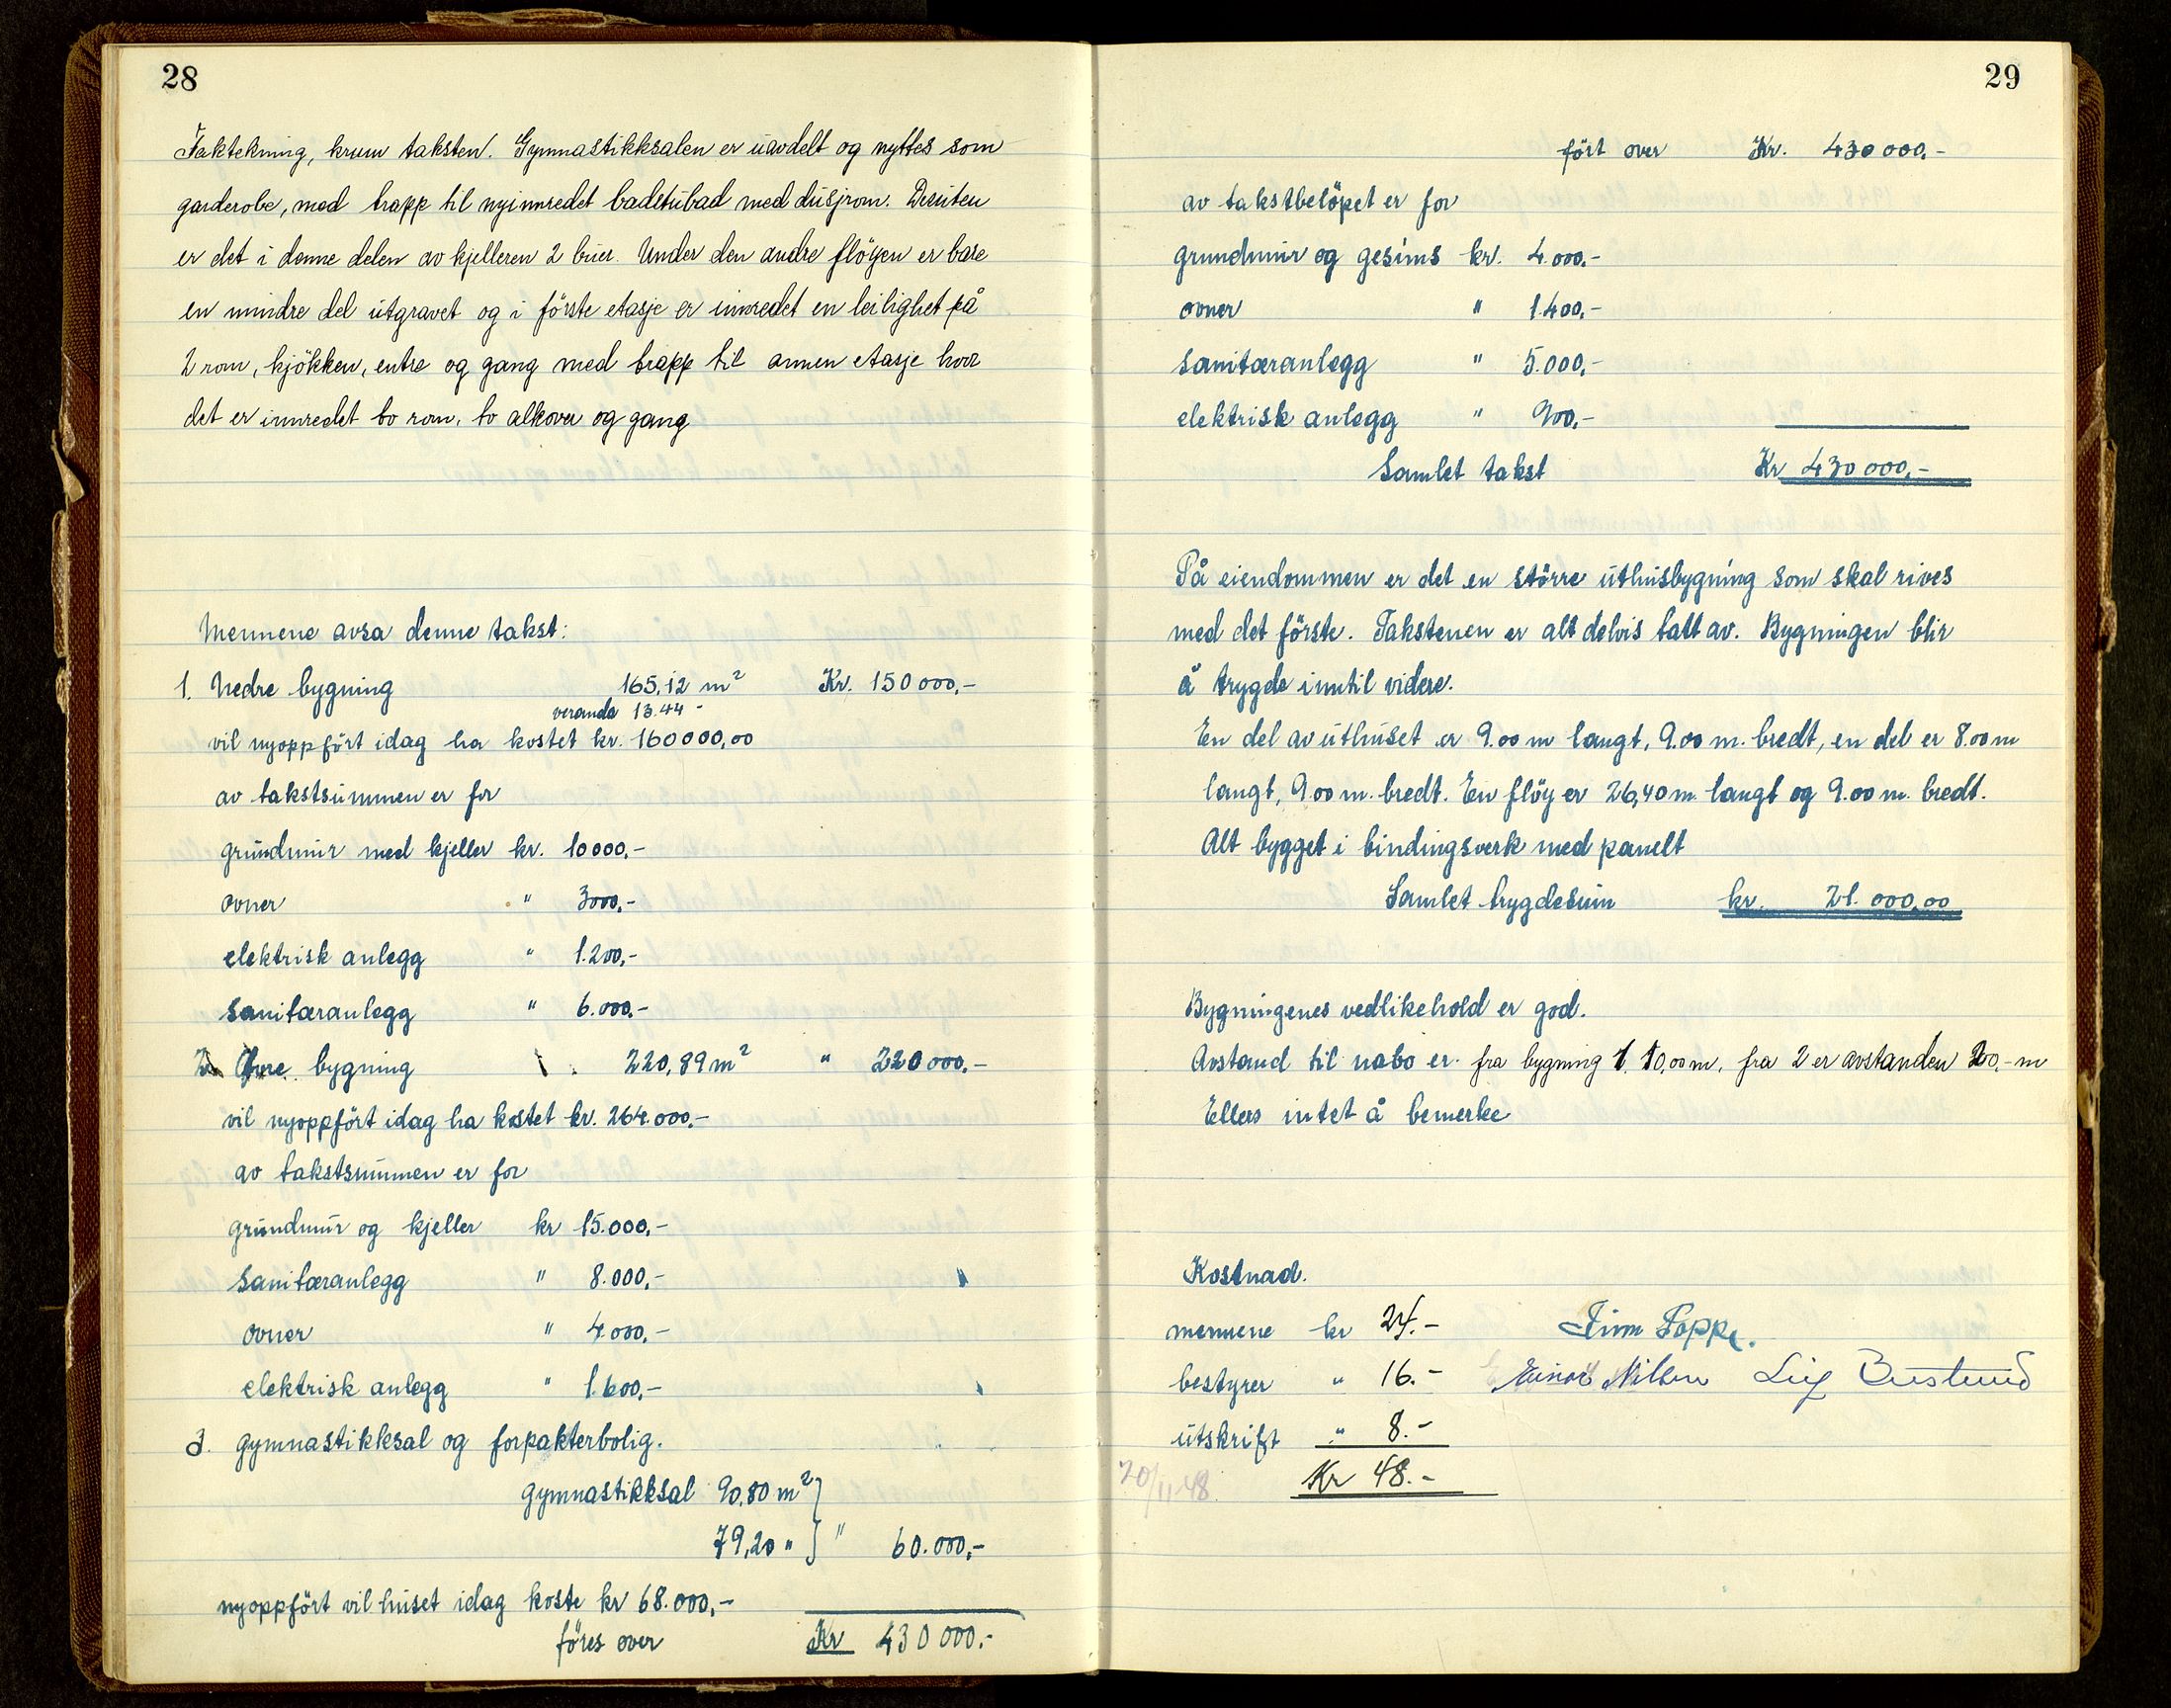 28
Taktekning, krum taksten. Gymnastikksalen er uavdelt og nyttes som
garderobe, med trapp til nyinnredet badstubad med dusjrom. Desuten
er det i denne delen av kjelleren 2 buer. Under den andre flöyen er bare
en mindre del utgravet og i förste etasje er innredet en leilighet på
2 rom, kjökken, entre og gang med trapp til annen etasje hvor
det er innredet to rom, to alkover og gang
Mennene avsa denne takst:
1. Nedre bygning 165,12 m² Kr. 150 000,-
veranda 13.44 -
vil nyoppfört idag ha kostet kr. 160000,00
av takstsummen er for
grundmur med kjeller kr. 10000,-
ovner " 3000,-
elektrisk anlegg " 1.200,-
sanitæranlegg " 6.000,-
2. Övre bygning 220,89 m² " 220 000,-
vil nyoppfört idag ha kostet kr. 264.000,-
av takstsummen er for
grundmur og kjeller kr 15.000,-
sanitæranlegg " 8.000,-
ovner " 4.000,-
elektrisk anlegg " 1.600,-
3. gymnastikksal og forpakterbolig.
gymnastikksal 90,80 m²
79,20 " } " 60.000,-
nyoppfört vil huset idag koste kr 68.000,-
föres over Kr 430 000,-
29
fört over Kr. 430 000,-
av takstbelöpet er for
grundmur og gesims kr. 4.000,-
ovner " 1.400,-
sanitæranlegg " 5.000,-
elektrisk anlegg " 900,-
Samlet takst Kr 430 000,-
På eiendommen er det en större uthusbygning som skal rives
med det förste. Takstenen er alt delvis tatt av. Bygningen blir
å trygde inntil videre.
En del av uthuset er 9.00 m langt, 9.00 m. bredt, en del er 8.00 m
langt, 9.00 m. bredt. En flöy er 26,40 m. langt og 9.00 m. bredt.
Alt bygget i bindingsverk med panelt
Samlet trygdesum kr. 21.000,00
Bygningenes vedlikehold er god.
Avstand til nabo er fra bygning 1. 10,00 m, fra 2 er avstanden 200,- m
Ellers intet å bemerke
Kostnad.
mennene kr 24.-
Finn Poppe.
bestyrer " 16.-
Einar Nilsen
utskrift " 8.-
Kr 48.-
20/11-48